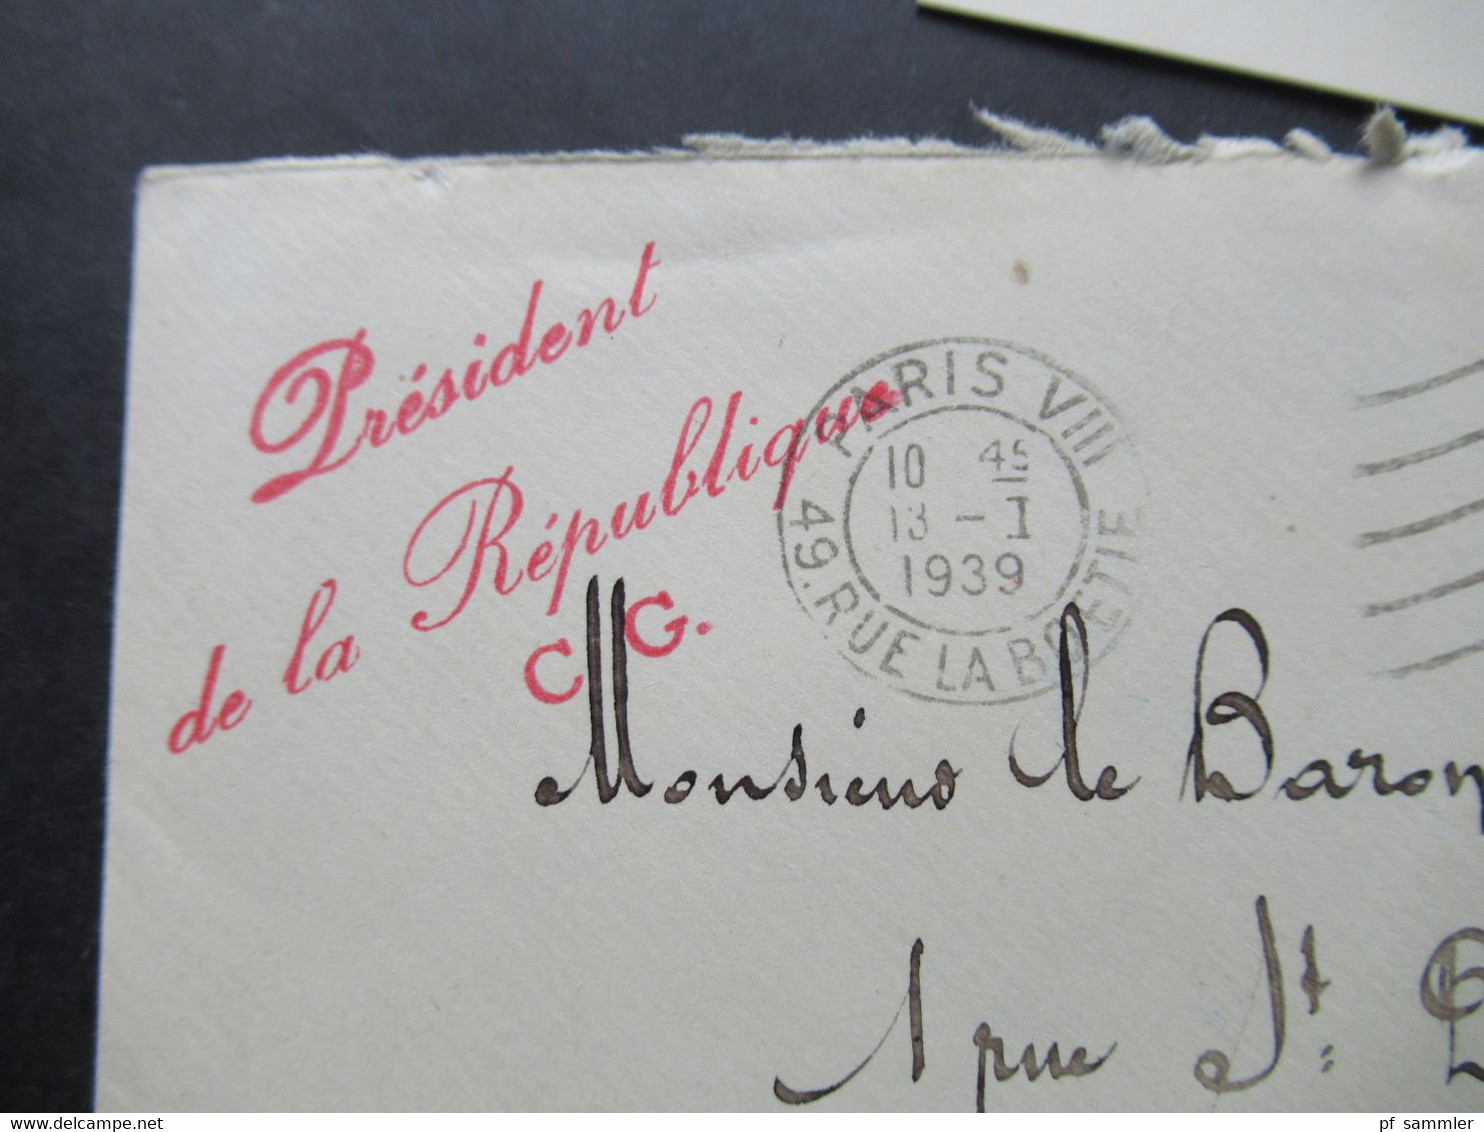 Président
de la République
C G.
PARIS VIII
10 45
13 - I
1939
49. RUE LA BOETIE
Monsieur le Baron
1 rue St.
www.delcampe.net
pf_sammler